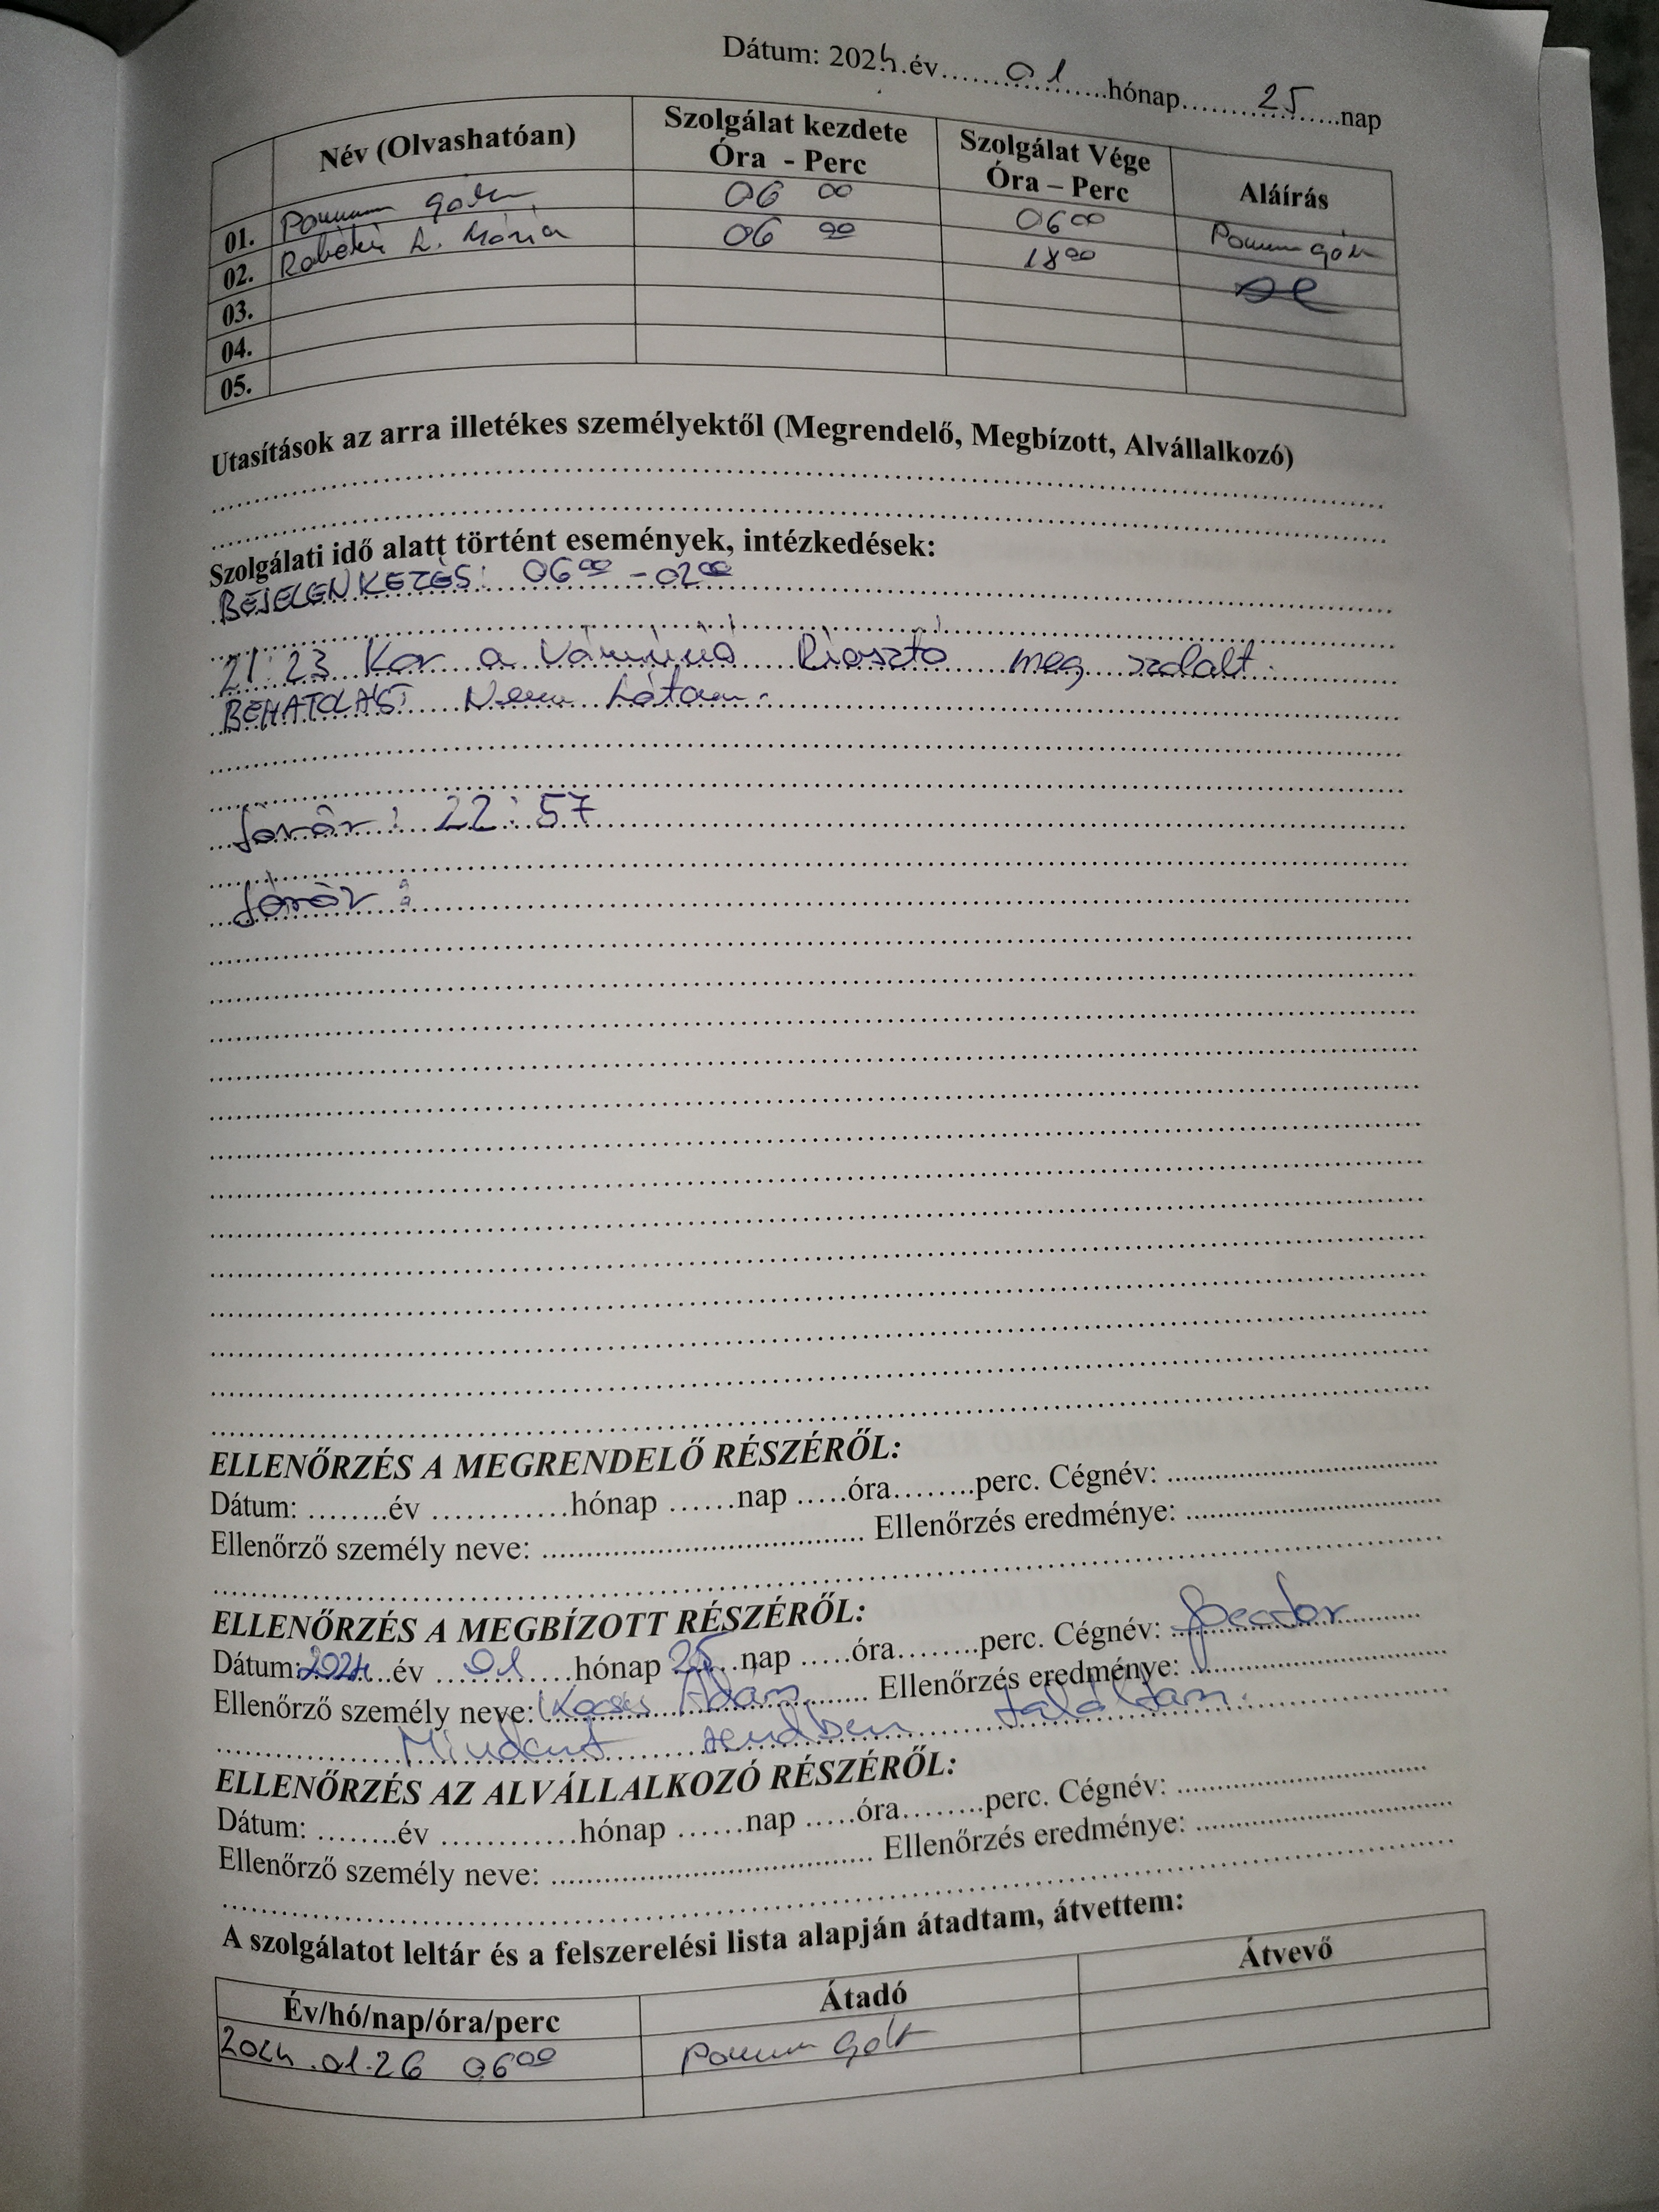 Dátum: 2024.év........01......hónap........25......nap
Név (Olvashatóan) Szolgálat kezdete Óra - Perc Szolgálat Vége Óra – Perc Aláírás
01. 06 00 06 00
02. Mária 06 00 18 00
03.
04.
05.
Utasítások az arra illetékes személyektől (Megrendelő, Megbízott, Alvállalkozó)
Szolgálati idő alatt történt események, intézkedések:
BEJELENKEZÉS: 06 00 - 02 00
21:23 Kor a Riasztó meg szolalt.
BEHATOLÁST Nem Látom.
Járőr: 22:57
Járőr:
ELLENŐRZÉS A MEGRENDELŐ RÉSZÉRŐL:
Dátum: ........év ............hónap ......nap .....óra........perc. Cégnév: ..............................
Ellenőrző személy neve: .............................. Ellenőrzés eredménye: ..............................
ELLENŐRZÉS A MEGBÍZOTT RÉSZÉRŐL:
Dátum: 2024 év 01 hónap 25 nap .....óra........perc. Cégnév:
Ellenőrző személy neve: Kocsis Ádám Ellenőrzés eredménye: ..............................
Mindent rendben találtam.
ELLENŐRZÉS AZ ALVÁLLALKOZÓ RÉSZÉRŐL:
Dátum: ........év ............hónap ......nap .....óra........perc. Cégnév: ..............................
Ellenőrző személy neve: .............................. Ellenőrzés eredménye: ..............................
A szolgálatot leltár és a felszerelési lista alapján átadtam, átvettem:
Év/hó/nap/óra/perc Átadó Átvevő
2024.01.26 06 00